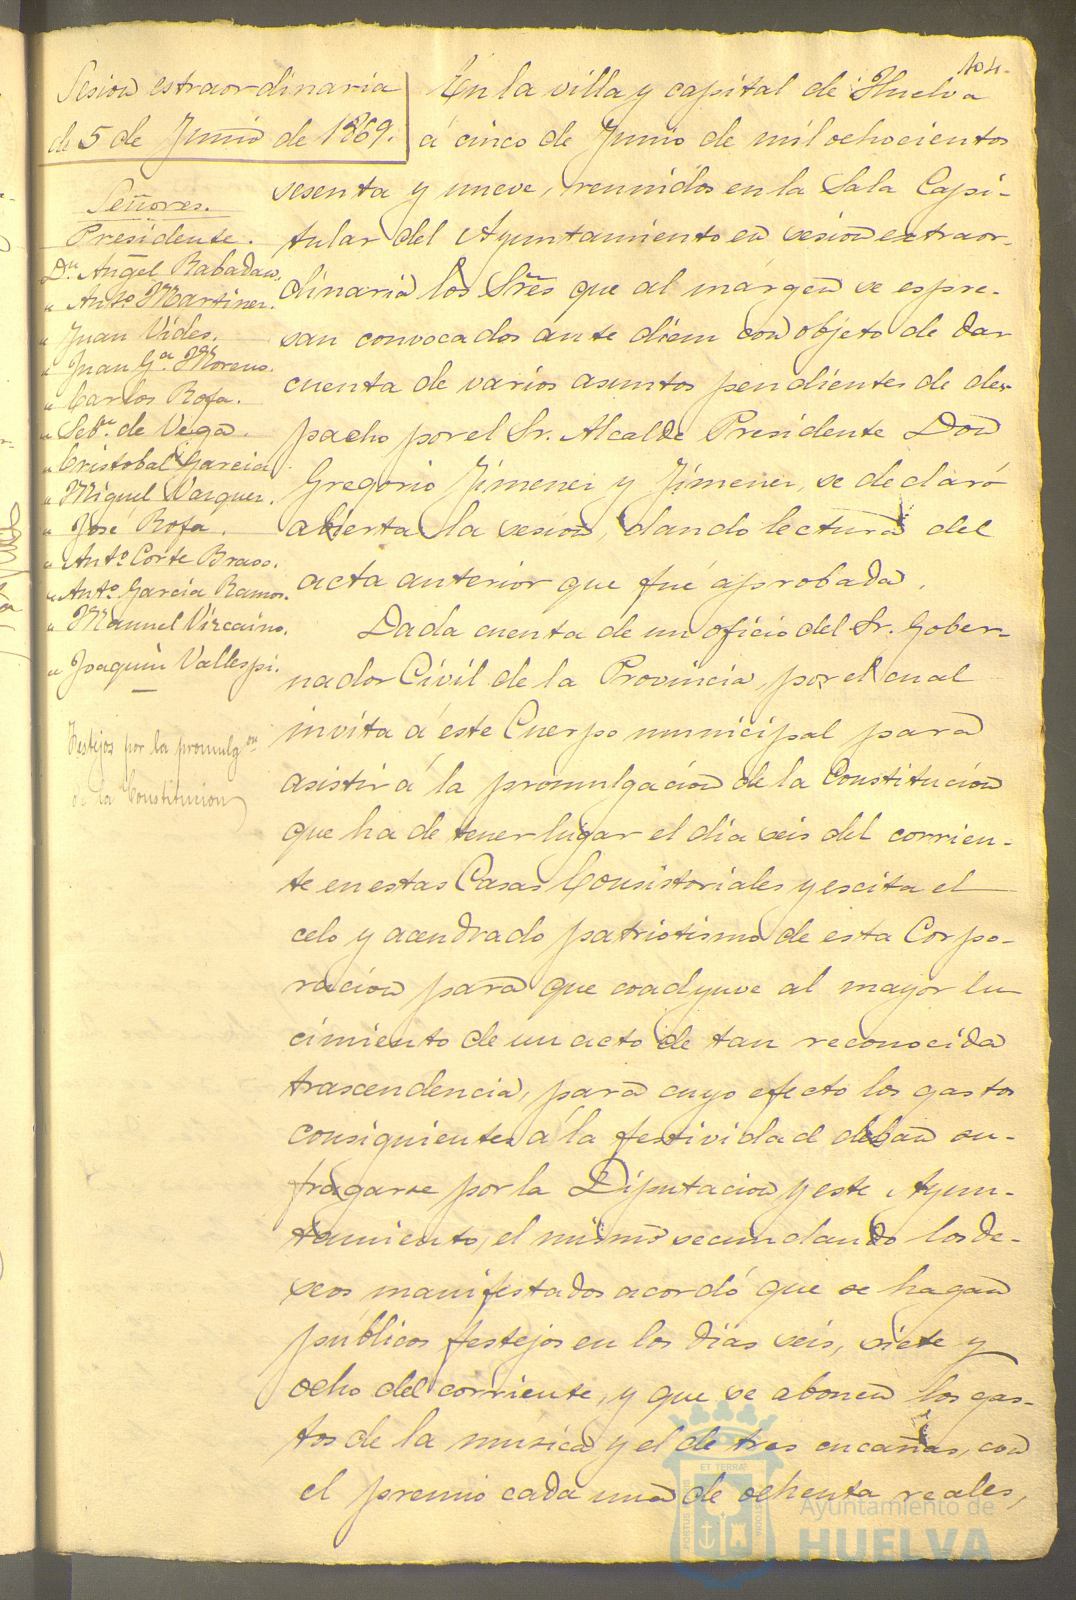 104.
Sesion estraordinaria
de 5 de Junio de 1869.
Señores.
Presidente.
Dn. Angel Rabadan.
" Anto. Martinez.
" Juan Vides.
" Juan Ga. Moreno.
" Carlos Rofa.
" Sebn. de Vega.
" Cristobal Garcia.
" Miguel Vazquez.
" José Rofa.
" Anto. Corte Bravo.
" Anto. Garcia Ramos.
" Manuel Vizcaino.
" Joaquin Vallespi.
Festejos por la promulgon
de la Constitucion
En la villa y capital de Huelva
á cinco de Junio de mil ochocientos
sesenta y nueve, reunidos en la Sala Capi-
tular del Ayuntamiento en sesion extraor-
dinaria los Sres que al márgen se espre-
san convocados ante diem con objeto de dar
cuenta de varios asuntos pendientes de des-
pacho por el Sr. Alcalde Presidente Don
Gregorio Jimenez y Jimenez, se declaró
abierta la sesion, dando lectura del
acta anterior que fué aprobada.
Dada cuenta de un oficio del Sr. Gober-
nador Civil de la Provincia, por el cual
invita á este Cuerpo municipal para
asistir á la promulgacion de la Constitucion
que ha de tener lugar el dia seis del corrien-
te en estas Casas Consistoriales y escita el
celo y acendrado patriotismo de esta Corpo-
racion para que coadyuve al mayor lu-
cimiento de un acto de tan reconocida
trascendencia, para cuyo efecto los gastos
consiguientes á la festividad deban su-
fragarse por la Diputacion y este Ayun-
tamiento, el mismo secundando los de-
seos manifestados acordó que se hagan
públicos festejos en los dias seis, siete y
ocho del corriente, y que se abonen los gas-
tos de la musica y el de tres cucañas, con
el premio cada una de ochenta reales,
Ayuntamiento de
HUELVA